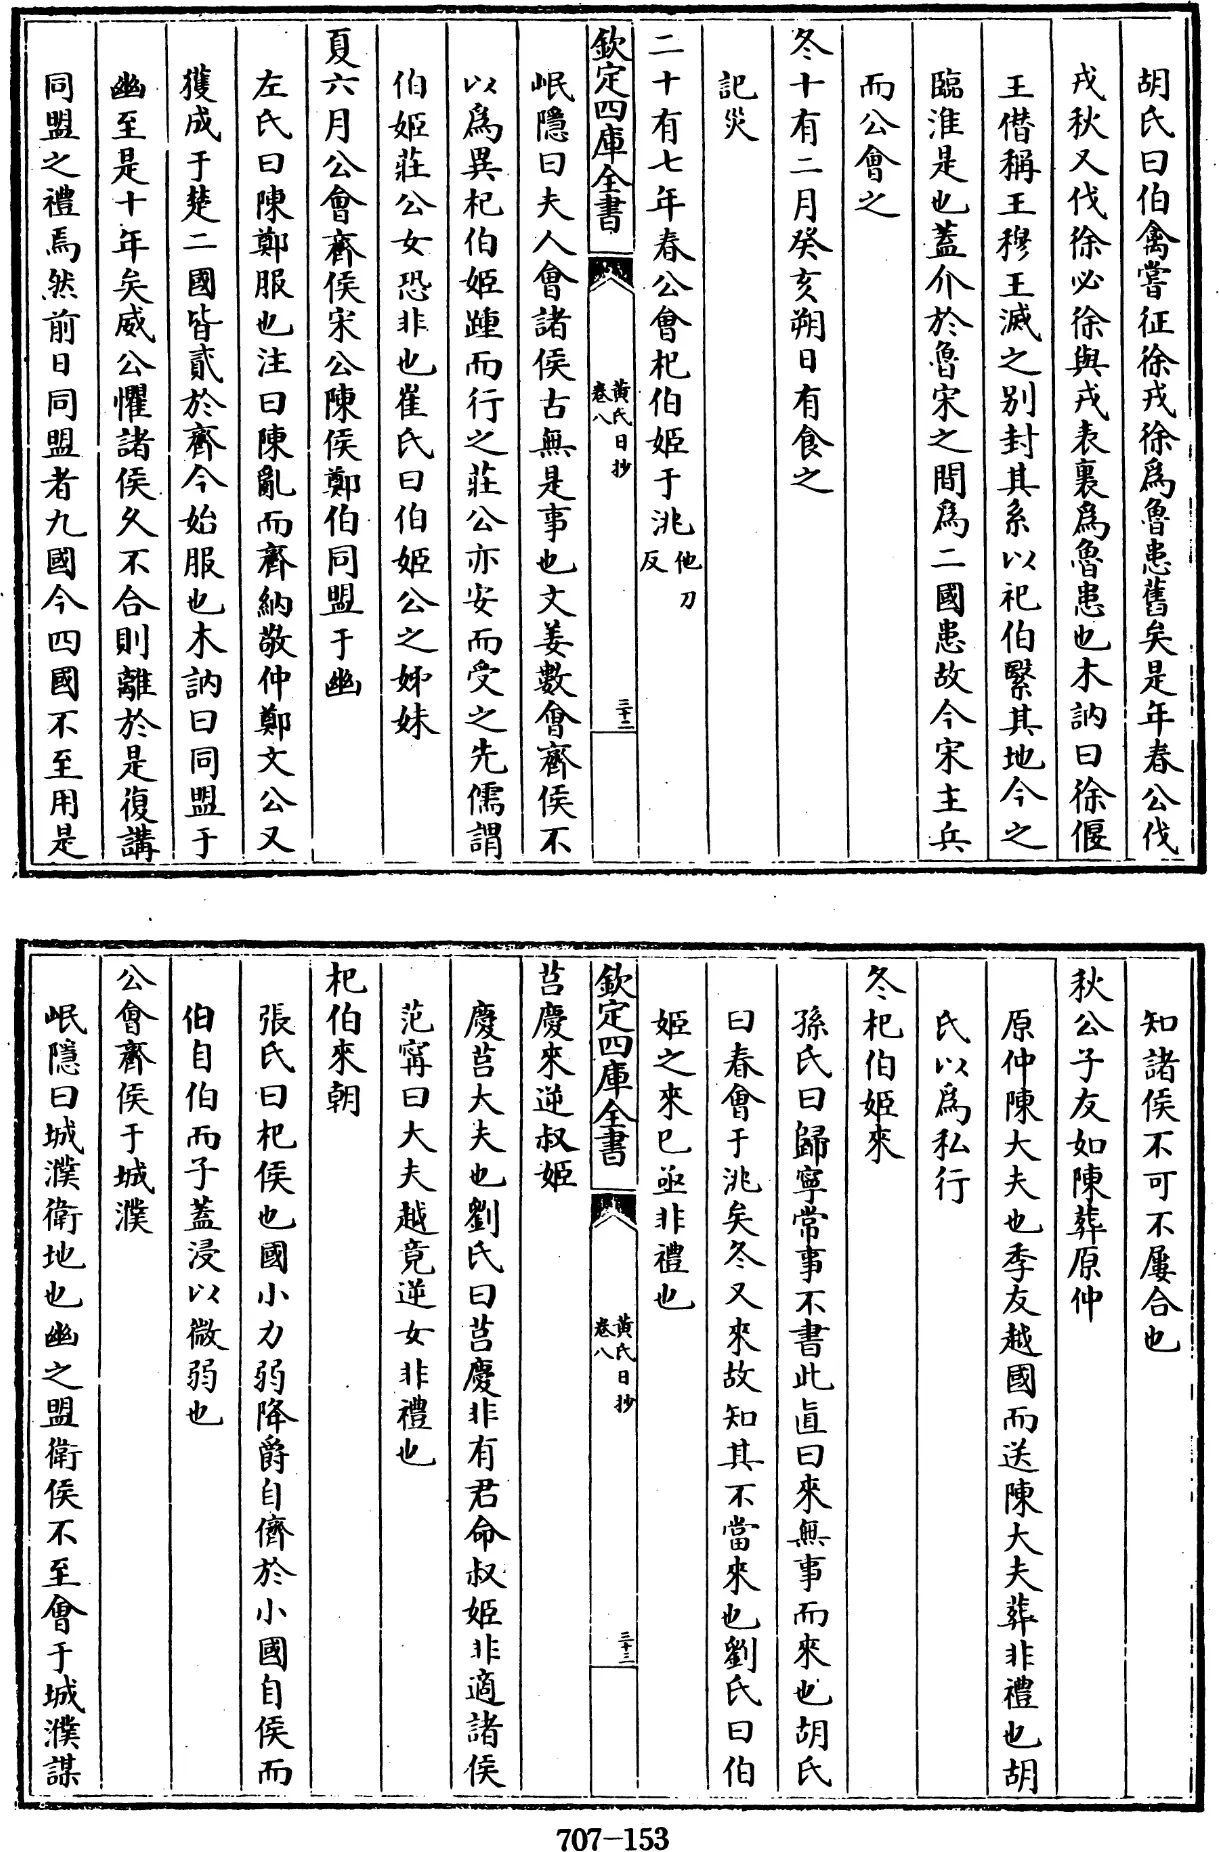 胡氏曰伯禽嘗征徐戎徐為魯患舊矣是年春公伐
戎秋又伐徐必徐與戎表裏為魯患也木訥曰徐偃
王僣稱王穆王滅之别封其系以祀伯繄其地今之
臨淮是也蓋介於魯宋之間為二國患故今宋主兵
而公會之
冬十有二月癸亥朔日有食之
記災
二十有七年春公會杞伯姬于洮他刀反
欽定四庫全書
黄氏日抄
卷八
三十二
岷隱曰夫人會諸侯古無是事也文姜數會齊侯不
以為異杞伯姬踵而行之莊公亦安而受之先儒謂
伯姬莊公女恐非也崔氏曰伯姬公之姊妹
夏六月公會齊侯宋公陳侯鄭伯同盟于幽
左氏曰陳鄭服也注曰陳亂而齊納敬仲鄭文公又
獲成于楚二國皆貳於齊今始服也木訥曰同盟于
幽至是十年矣威公懼諸侯久不合則離於是復講
同盟之禮焉然前日同盟者九國今四國不至用是
知諸侯不可不屢合也
秋公子友如陳葬原仲
原仲陳大夫也季友越國而送陳大夫葬非禮也胡
氏以為私行
冬杞伯姬來
孫氏曰歸寧常事不書此直曰來無事而來也胡氏
曰春會于洮矣冬又來故知其不當來也劉氏曰伯
姬之來已亟非禮也
欽定四庫全書
黄氏日抄
卷八
三十三
莒慶來逆叔姬
慶莒大夫也劉氏曰莒慶非有君命叔姬非適諸侯
范甯曰大夫越竟逆女非禮也
杞伯來朝
張氏曰杞侯也國小力弱降爵自儕於小國自侯而
伯自伯而子蓋浸以微弱也
公會齊侯于城濮
岷隱曰城濮衛地也幽之盟衛侯不至會于城濮謀
707-153